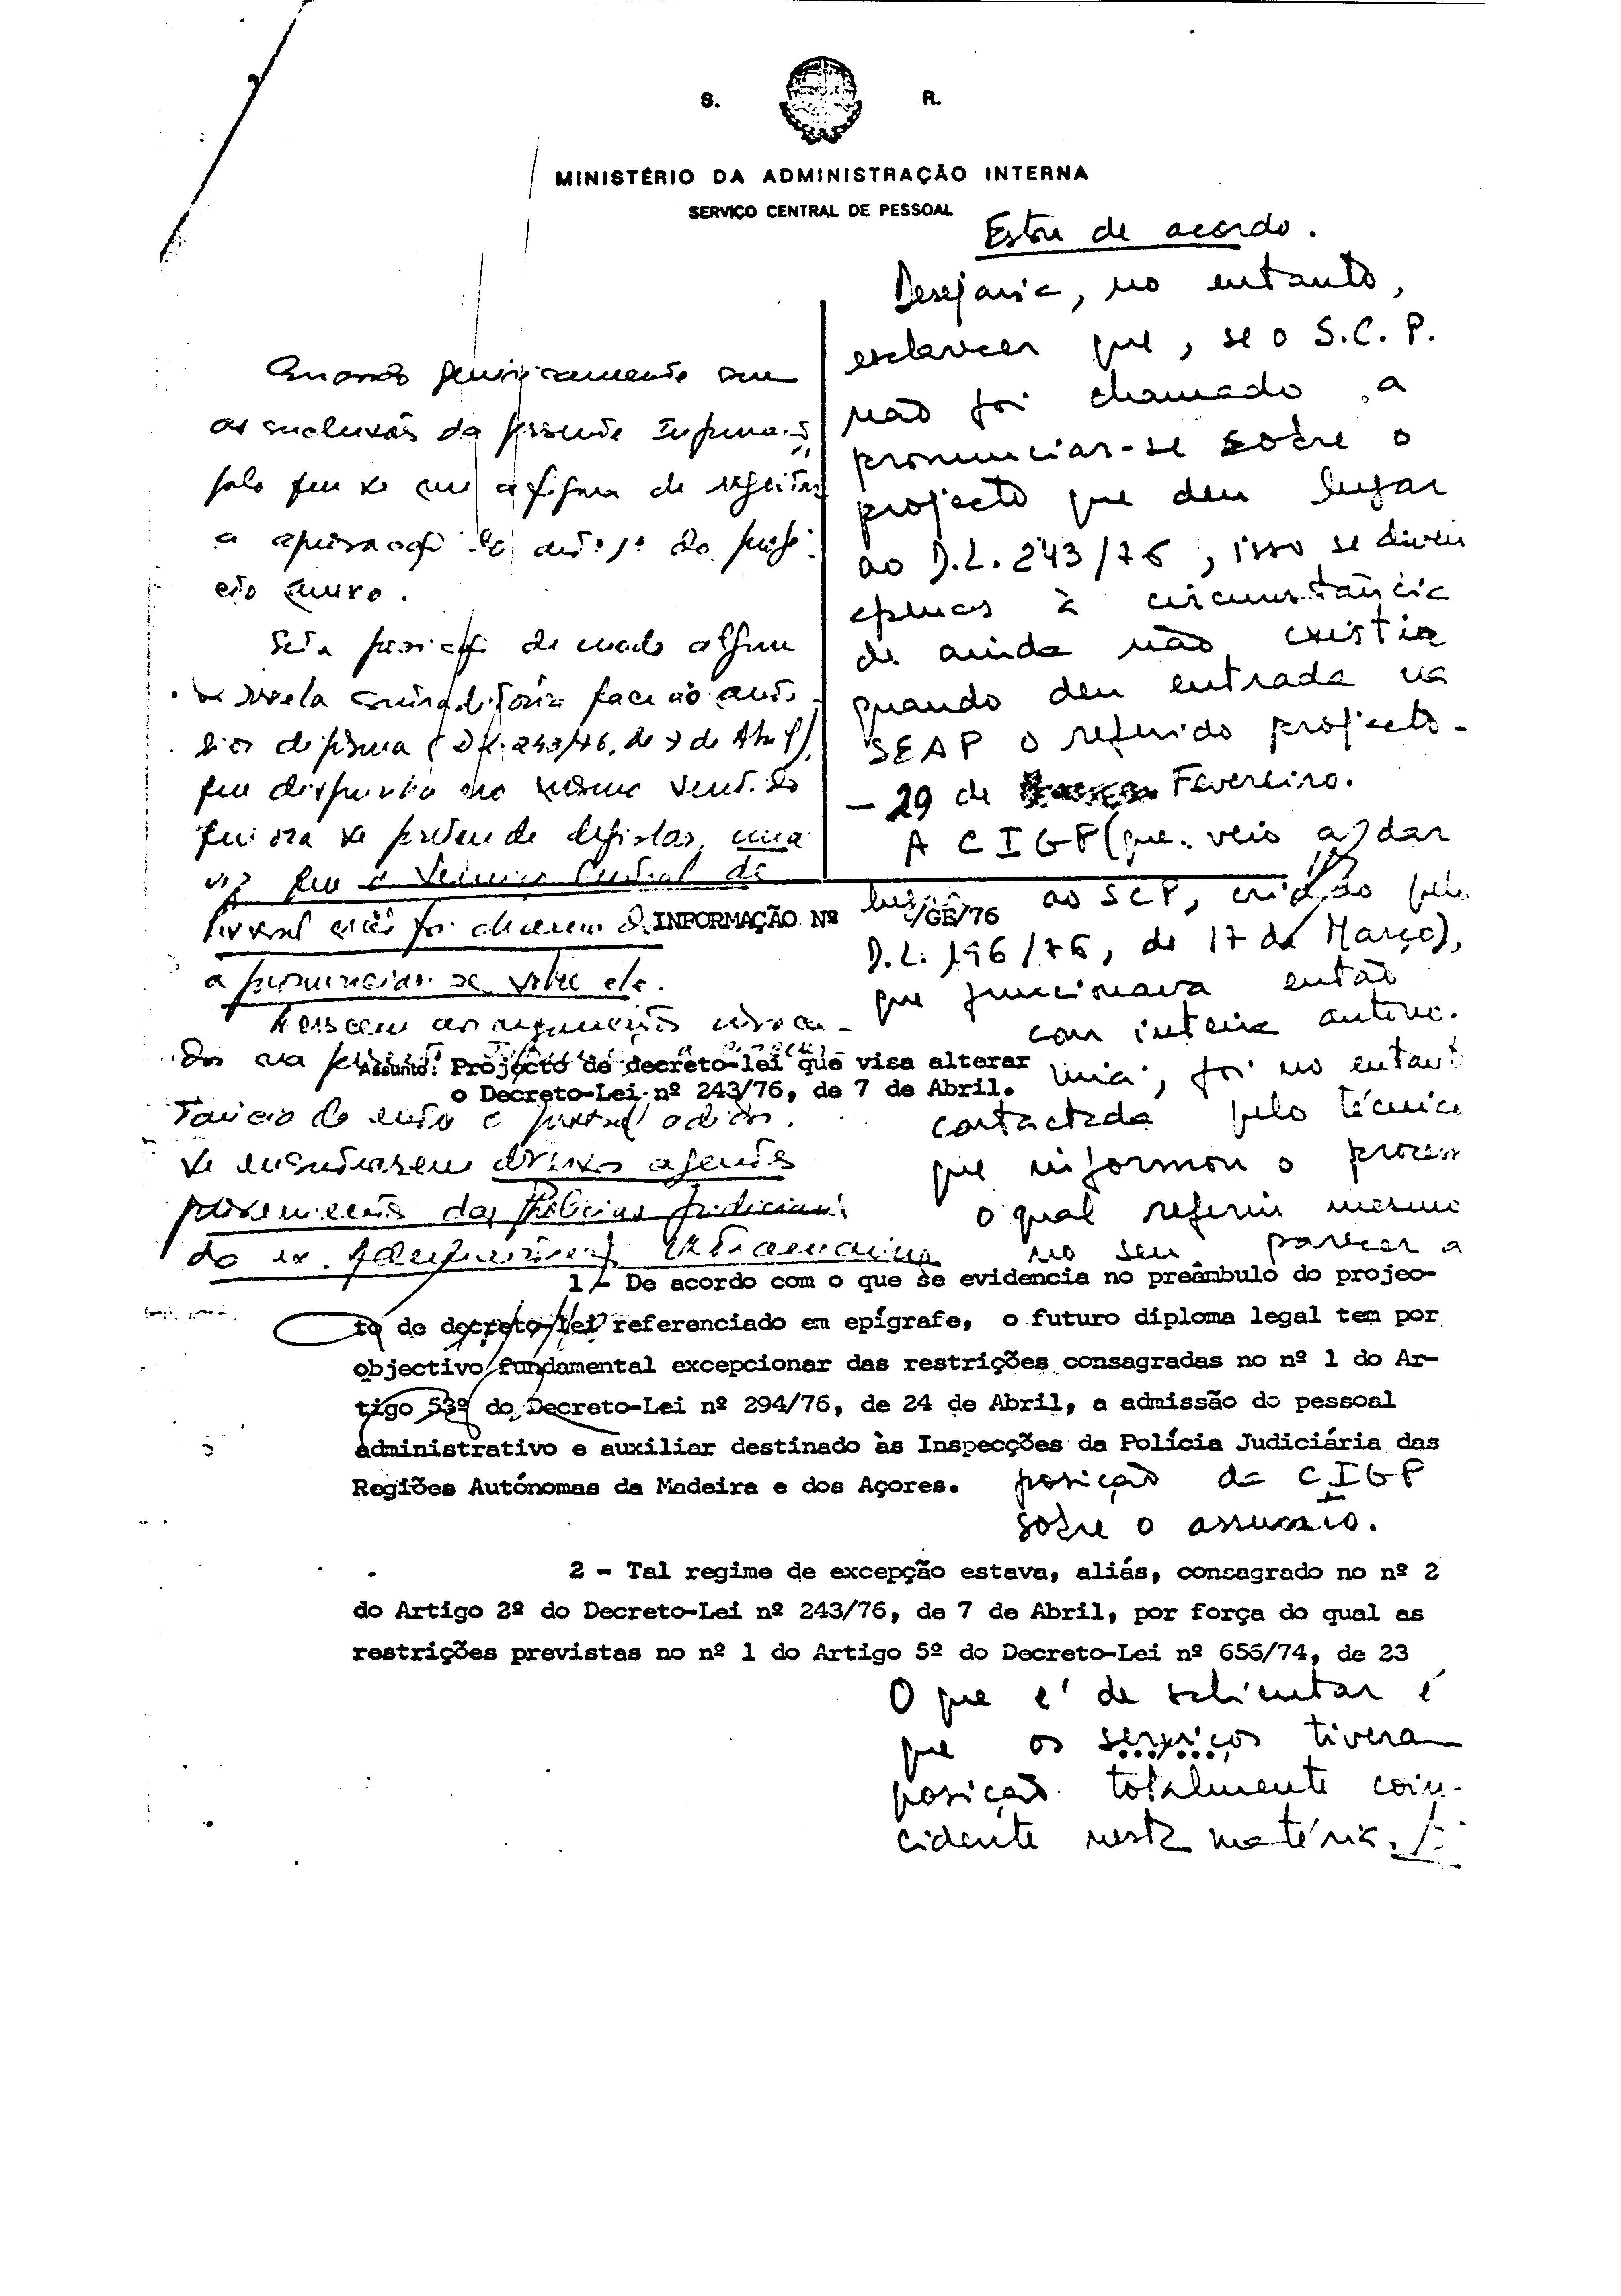 S. R.
MINISTÉRIO DA ADMINISTRAÇÃO INTERNA
SERVIÇO CENTRAL DE PESSOAL
Estou de acordo.
Desejaria, no entanto,
esclarecer que, se o S.C.P.
não foi chamado a
pronunciar-se sobre o
projecto que deu lugar
ao D.L. 243/76, isso se deveu
apenas à circunstância
de ainda não existir
quando deu entrada na
SEAP o referido projecto -
- 29 de Fevereiro.
A CIGP (que veio a dar
lugar ao SCP, criado pelo
D.L. 196/76, de 17 de Março),
que funcionava então
com inteira autono-
mia, foi no entanto
contactada pelo técnico
que informou o processo
o qual referiu mesmo
no seu parecer a
posição da CIGP
sobre o assunto.
O que é de salientar é
que os serviços tiveram
posição totalmente coin-
cidente nesta matéria.
Concordo genericamente com
as conclusões da presente Informação,
pelo que se me afigura de rejeitar
a aprovação do artº 1º do proje-
cto anexo.
Esta posição de modo algum
se revela contraditória face ao ante-
rior diploma (D.L. 243/76, de 7 de Abril),
que dispunha no mesmo sentido
que ora se pretende legislar, uma
vez que o Serviço Central de
Pessoal não foi chamado
a pronunciar-se sobre ele.
do ex.
INFORMAÇÃO Nº /GE/76
Assunto: Projecto de decreto-lei que visa alterar
o Decreto-Lei nº 243/76, de 7 de Abril.
1 - De acordo com o que se evidencia no preâmbulo do projec-
to de decreto-lei referenciado em epígrafe, o futuro diploma legal tem por
objectivo fundamental excepcionar das restrições consagradas no nº 1 do Ar-
tigo 53º do Decreto-Lei nº 294/76, de 24 de Abril, a admissão do pessoal
administrativo e auxiliar destinado às Inspecções da Polícia Judiciária das
Regiões Autónomas da Madeira e dos Açores.
2 - Tal regime de excepção estava, aliás, consagrado no nº 2
do Artigo 2º do Decreto-Lei nº 243/76, de 7 de Abril, por força do qual as
restrições previstas no nº 1 do Artigo 5º do Decreto-Lei nº 656/74, de 23